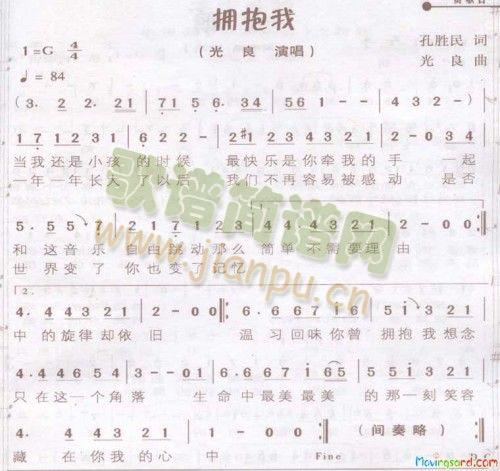 拥抱我
1=G 4/4 （光 良 演唱） 孔胜民 词
♩= 84 光 良 曲
(3. 2 2. 21 | 71 5. 6. 34 | 561 1 - - | 4 3 2 - ) |
1 7 1 2 3 1 | 6 2 2 - | 2 #1 2 3 4 3 2 1 | 2 - 0 34 |
当我 还是 小孩 的时候 最快乐是你牵我的 手 一起
一年 一年 长大 了以后 我们不再容易被感动 是否
5. 5 5 7 | 2. 1 7 1 2 3 | 4. 4 4 3 2 1 | 2 - 0 0 :|
和 这 音 乐 自由跳动那么 简单 不需要理 由
世 界 变 了 你 也 变 了 记忆
2.
4. 4 4 3 2 1 | 2 - 0 0 :| 6. 6 6 7 1 6 | 5. 1 3 2 1 |
中 的 旋 律 却 依 旧 温 习 回 味 你 曾 拥抱 我 想念
4. 4 4 6 5 4 | 3 - - 0 1 | 6. 6 6 7 1 6 5 | 5. 1 3 2 1 |
只 在 这 一 个 角 落 生 命 中 最 美 最 美 的 那 一 刻 笑容
4. 4 3 2 1 | 1 - 0 0 :| （间奏略）
藏 在 你 我 的 心 中 Fine D.C.
歌谱简谱网
www.jianpu.cn
Movingsord.com